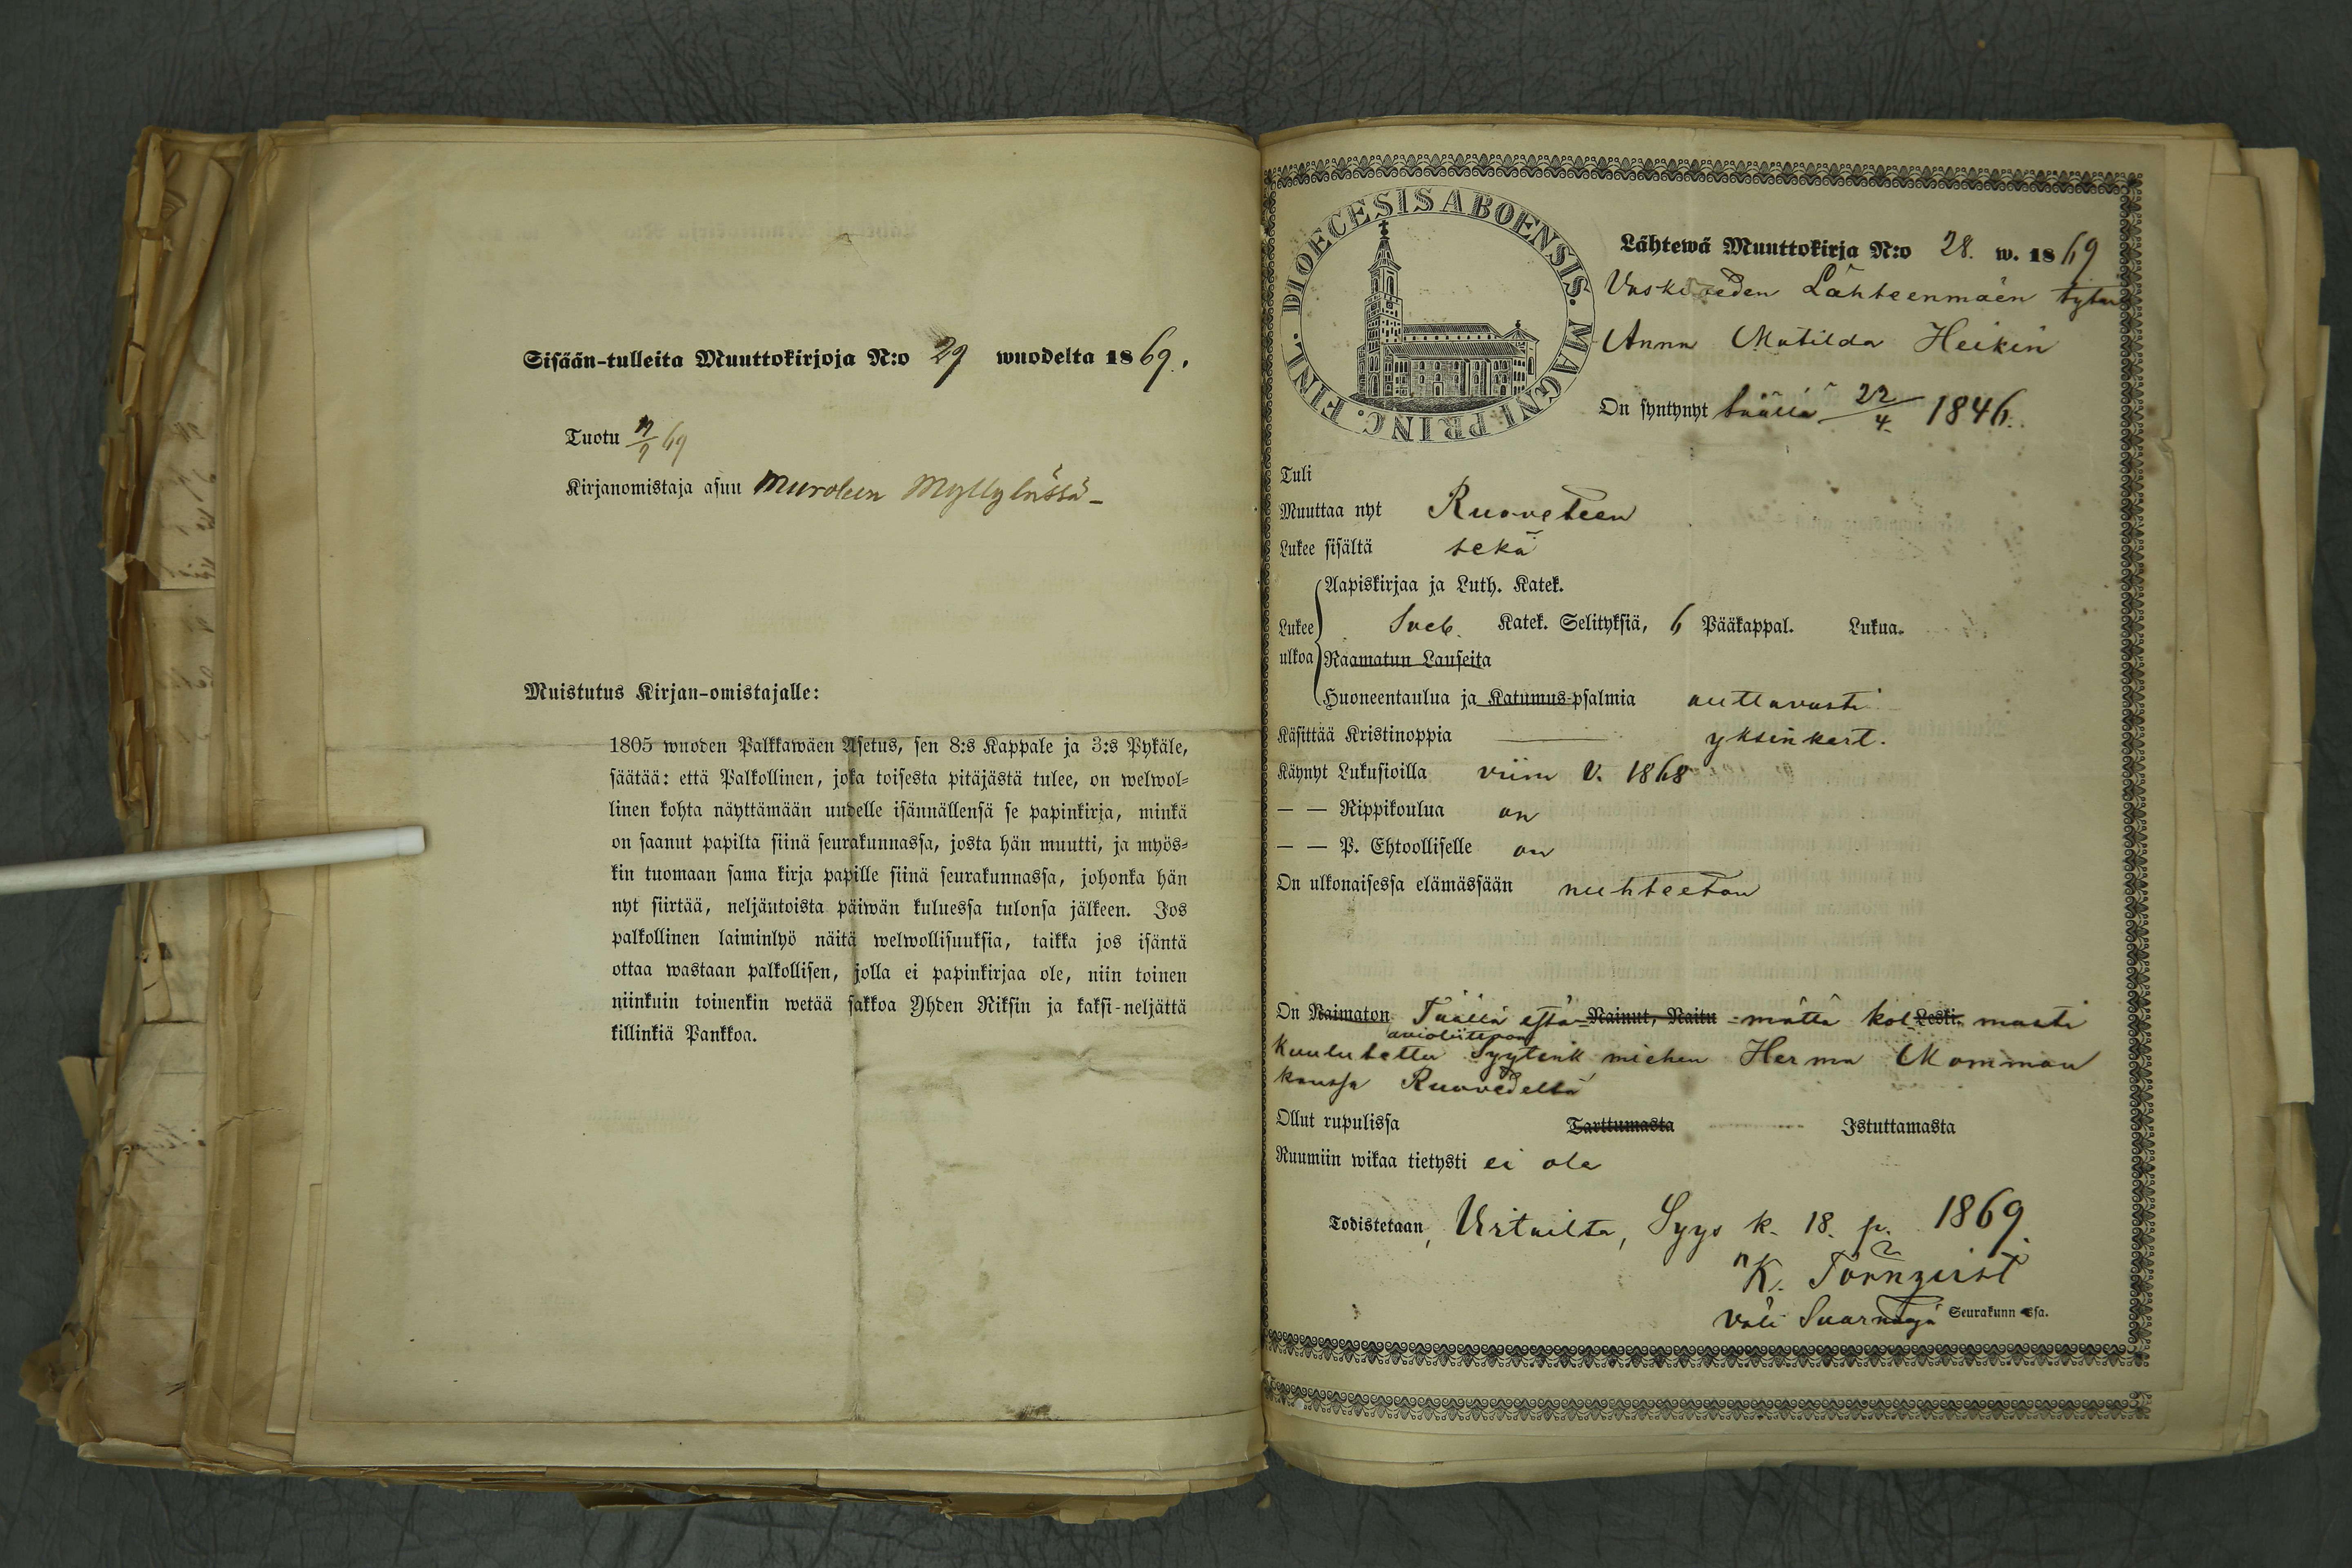 Sisään-tulleita Muuttokirjoja N:o 29 wuodelta 1869.
Tuotu 69
Kirjanomistaja asuu Muroleen Myllylässä
Muistutus Kirjan-omistajalle:
1805 wuoden Palkkawäen Asetus, sen 8:s Kappale ja 3:s Pykäle,
säätää: että Palkollinen, joka toisesta pitäjästä tulee, on welwol=
linen kohta näyttämään uudelle isännällensä se papinkirja, minkä
on saanut papilta siinä seurakunnassa, josta hän muutti, ja myös=
kin tuomaan sama kirja papille siinä seurakunnassa, johonka hän
nyt siirtää, neljäntoista päiwän kuluessa tulonsa jälkeen. Jos
palkollinen laiminlyö näitä welwollisuuksia, taikka jos isäntä
ottaa wastaan palkollisen, jolla ei papinkirjaa ole, niin toinen
niinkuin toinenkin wetää sakkoa Yhden Riksin ja kaksi-neljättä
killinkiä Pankkoa.
DIOECESIS ABOENSIS. MAGNI PRINC. FINL.
Lähtewä Muuttokirja N:o 28. w. 1869
Vaskiveden Lähteenmäen tytär
Anna Matilda Heikin
On syntynyt täällä 22/4. 1846.
Tuli
Muuttaa nyt Ruoveteen
Lukee sisältä sekä
Aapiskirjaa ja Luth. Katek.
Lukee Sveb. Katek. Selityksiä, 6 Pääkappal. Lukua.
ulkoa Raamatun Lauseita
Huoneentaulua ja Katumus-psalmia auttavasti
Käsittää Kristinoppia yksinkert.
Käynyt Lukusioilla viim v. 1868
— — Rippikoulua on
— — P. Ehtoolliselle on
On ulkonaisessa elämässään nuhteeton
On Naimaton. Täällä estä- Nainut, Naitu -mättä kol Leski. masti
avioliittoon
kuulutettu miehen Herma Mamman
kanssa Ruovedeltä
Ollut rupulissa Tarttumasta Istuttamasta
Ruumiin wikaa tietysti ei ole
Todistetaan, Virtailta, Syys k. 18. p. 1869.
K. Törnqvist
Väli Saarnaaja Seurakunn sa.